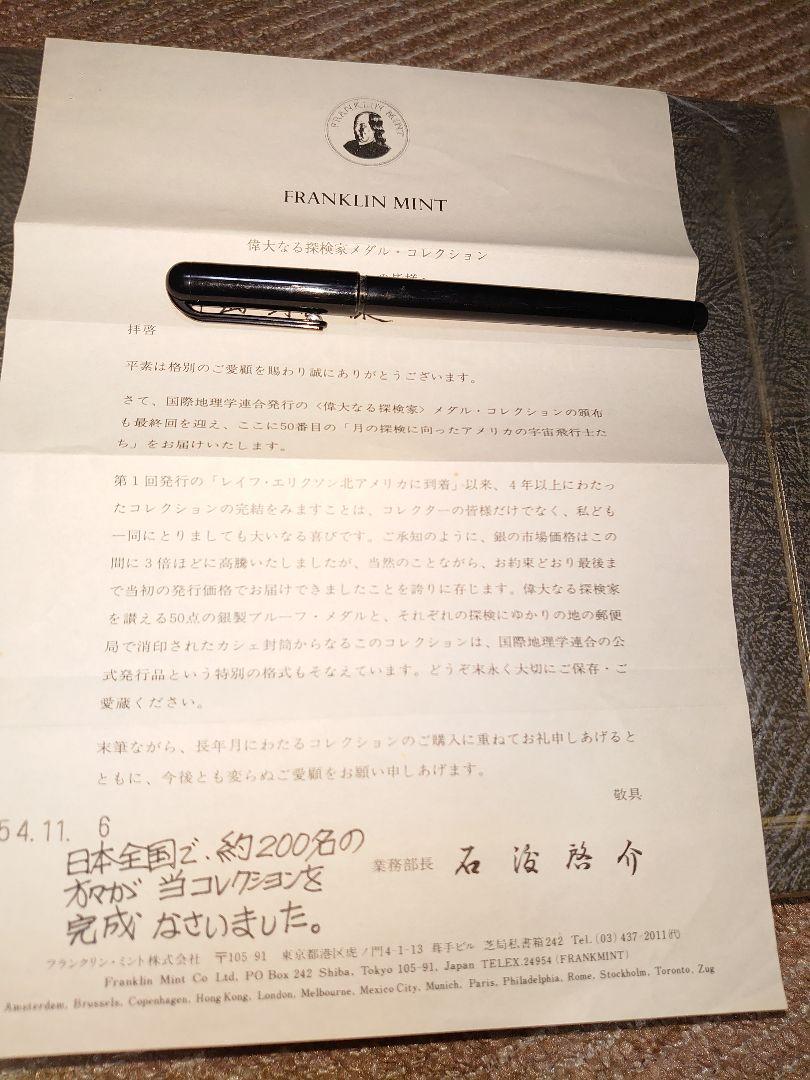 FRANKLIN MINT
FRANKLIN MINT
偉大なる探検家メダル・コレクション
の皆様へ
拝啓
平素は格別のご愛顧を賜わり誠にありがとうございます。
さて、国際地理学連合発行の〈偉大なる探検家〉メダル・コレクションの頒布
も最終回を迎え、ここに50番目の「月の探検に向ったアメリカの宇宙飛行士た
ち」をお届けいたします。
第1回発行の「レイフ・エリクソン北アメリカに到着」以来、4年以上にわたっ
たコレクションの完結をみますことは、コレクターの皆様だけでなく、私ども
一同にとりましても大いなる喜びです。ご承知のように、銀の市場価格はこの
間に3倍ほどに高騰いたしましたが、当然のことながら、お約束どおり最後ま
で当初の発行価格でお届けできましたことを誇りに存じます。偉大なる探検家
を讃える50点の銀製プルーフ・メダルと、それぞれの探検にゆかりの地の郵便
局で消印されたカシェ封筒からなるこのコレクションは、国際地理学連合の公
式発行品という特別の格式もそなえています。どうぞ末永く大切にご保存・ご
愛蔵ください。
末筆ながら、長年月にわたるコレクションのご購入に重ねてお礼申しあげると
ともに、今後とも変らぬご愛顧をお願い申しあげます。
敬具
54.11.6
日本全国で、約200名の
方々が 当コレクションを
完成 なさいました。
業務部長 石 渡 啓 介
フランクリン・ミント株式会社 〒105-91 東京都港区虎ノ門4-1-13 葺手ビル 芝局私書箱242 Tel.(03)437-2011(代)
Franklin Mint Co Ltd, PO Box 242 Shiba, Tokyo 105-91, Japan TELEX.24954 (FRANKMINT)
Amsterdam, Brussels, Copenhagen, Hong Kong, London, Melbourne, Mexico City, Munich, Paris, Philadelphia, Rome, Stockholm, Toronto, Zug